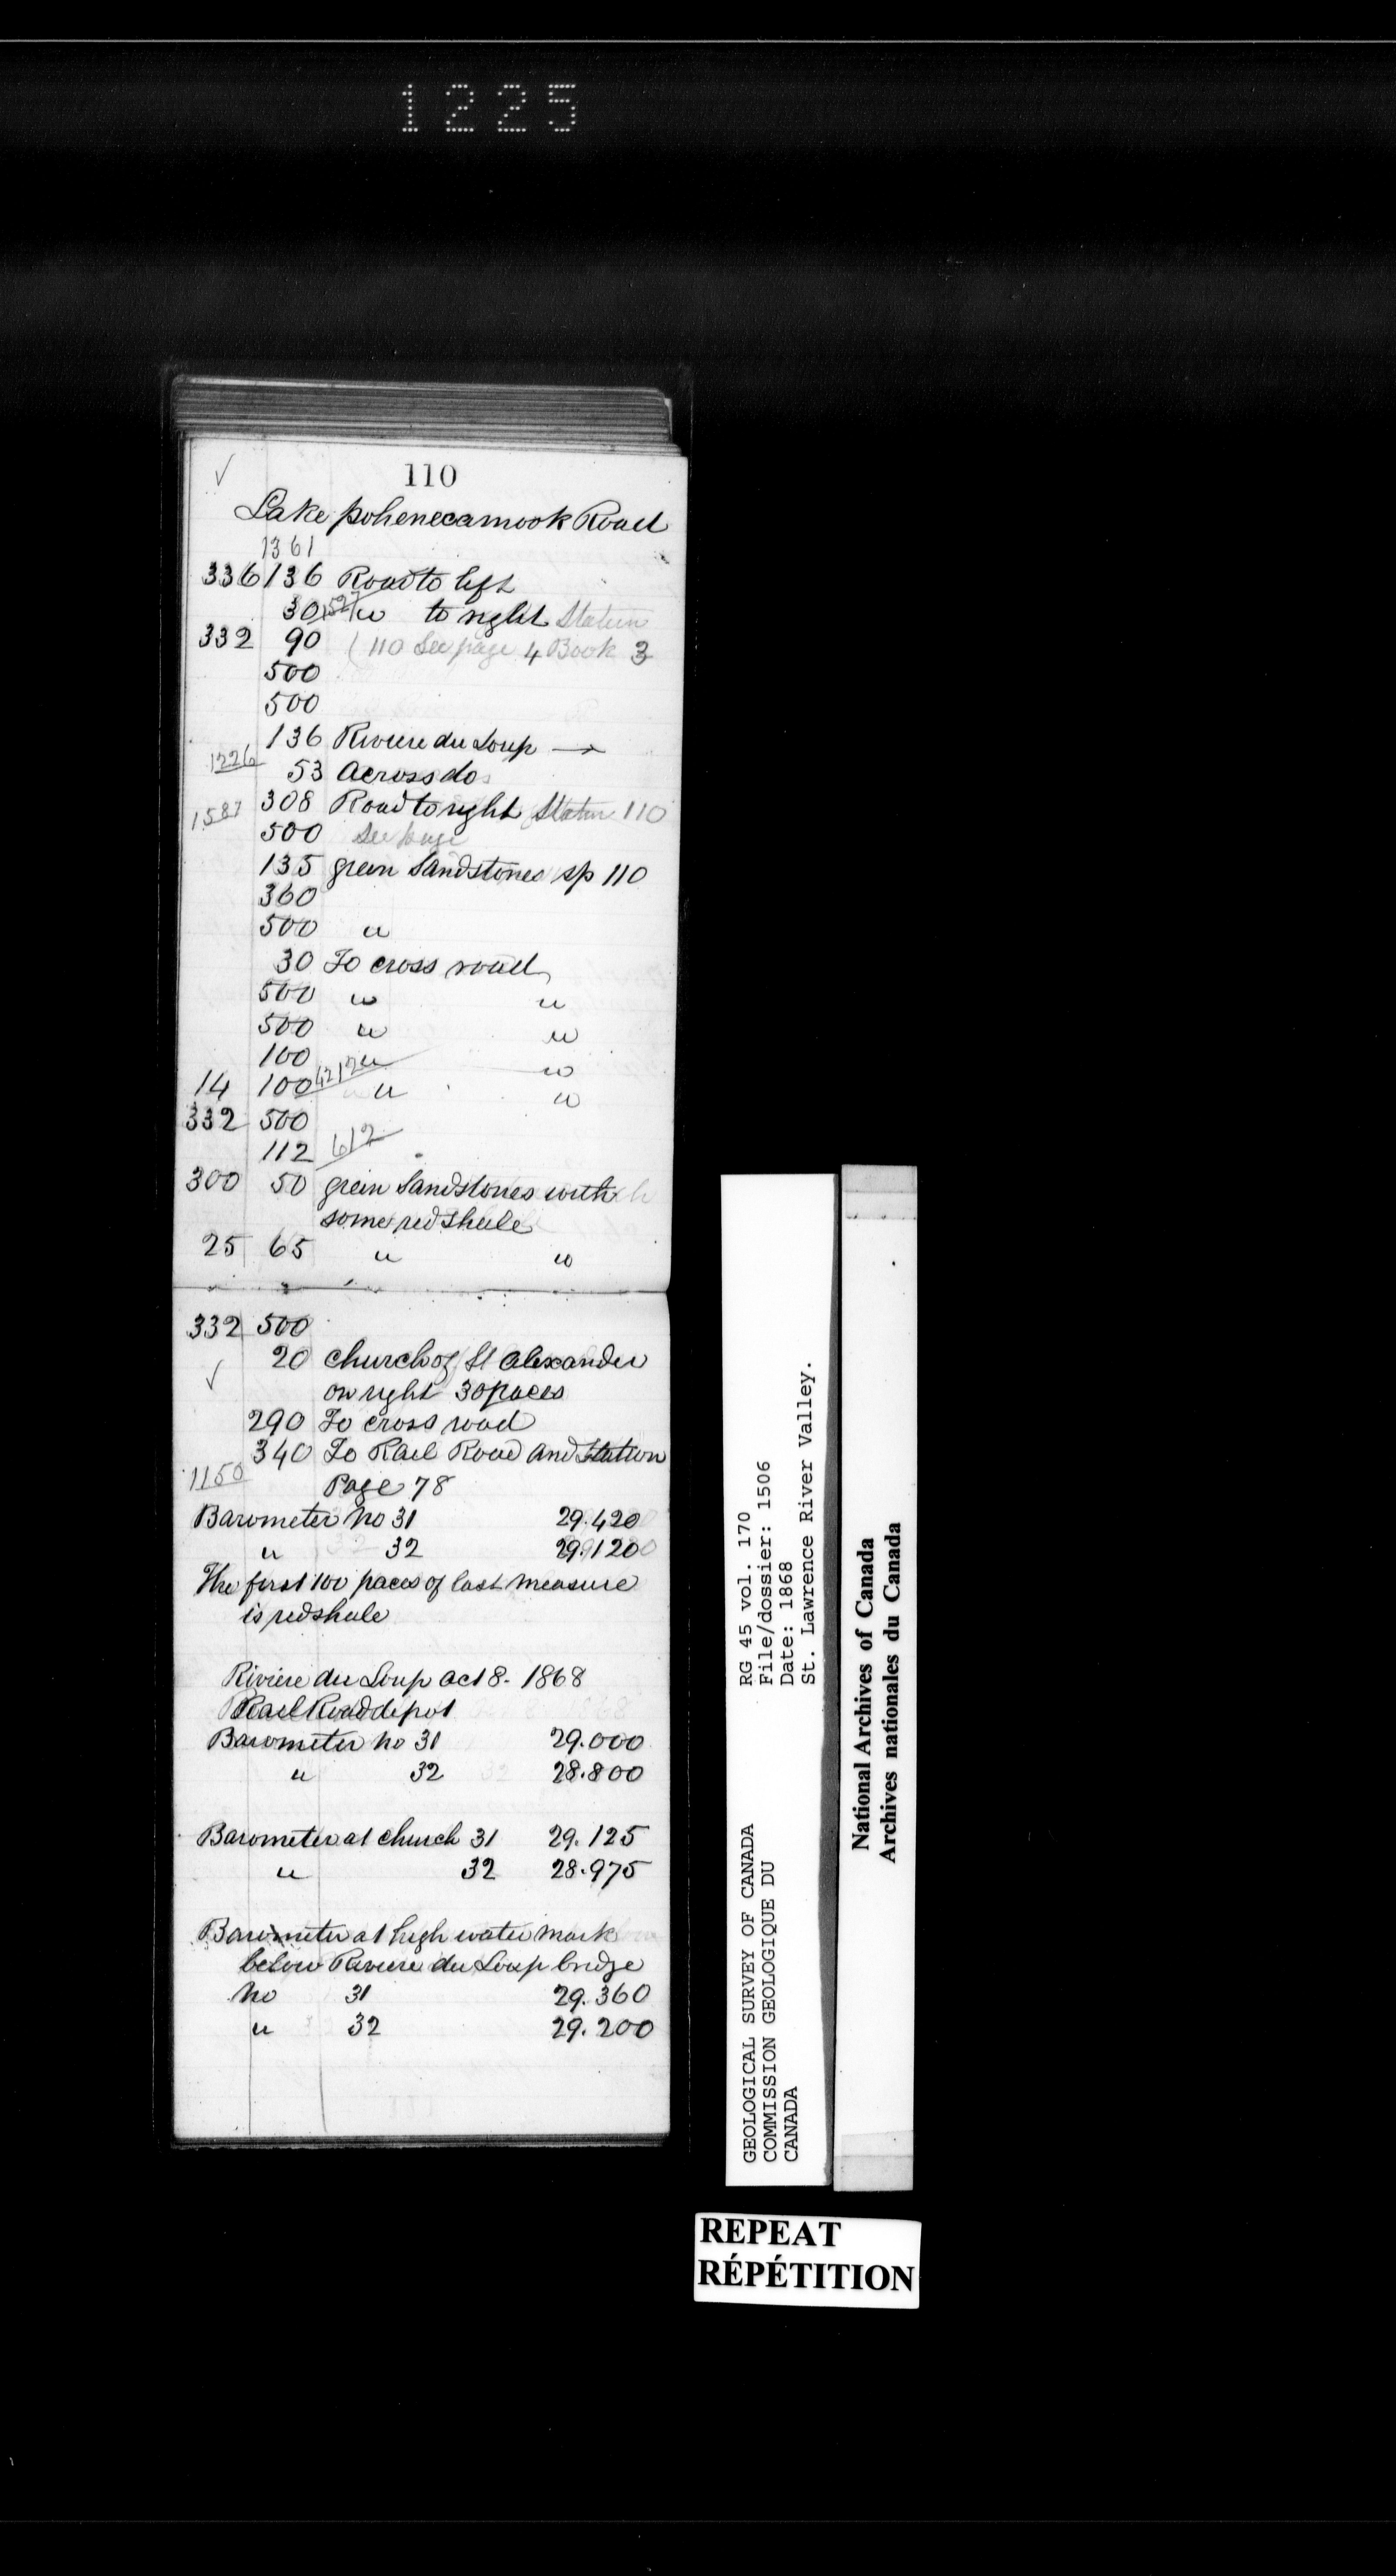 1225
110
Lake pohenecamook Road
1361
336 136 Road to left
30 1527 " to right Station
332 90 (110 See page 4 Book 3
500
500
136 Riviere du Loup →
1226 53 Across do
1587 308 Road to right Station 110
500 See page
135 green Sandstones sp 110
360
500 "
30 To cross road
500 " "
500 " "
100 4212 " "
14 100 " "
332 500
112 612
300 50 green Sandstones with
some red shale
25 65 " "
332 500
20 church of St Alexander
on right 30 paces
290 To cross road
340 To Rail Road and Station
1150 Page 78
Barometer No 31 29.420
" 32 29.120
The first 100 paces of last measure
is red shale
Riviere du Loup Oct 8. 1868
Rail Road depot
Barometer No 31 29.000
" 32 28.800
Barometer at church 31 29.125
" 32 28.975
Barometer at high water mark
below Riviere du Loup bridge
No 31 29.360
" 32 29.200
GEOLOGICAL SURVEY OF CANADA RG 45 vol. 170
COMMISSION GEOLOGIQUE DU File/dossier: 1506
CANADA Date: 1868
St. Lawrence River Valley.
National Archives of Canada
Archives nationales du Canada
REPEAT
RÉPÉTITION